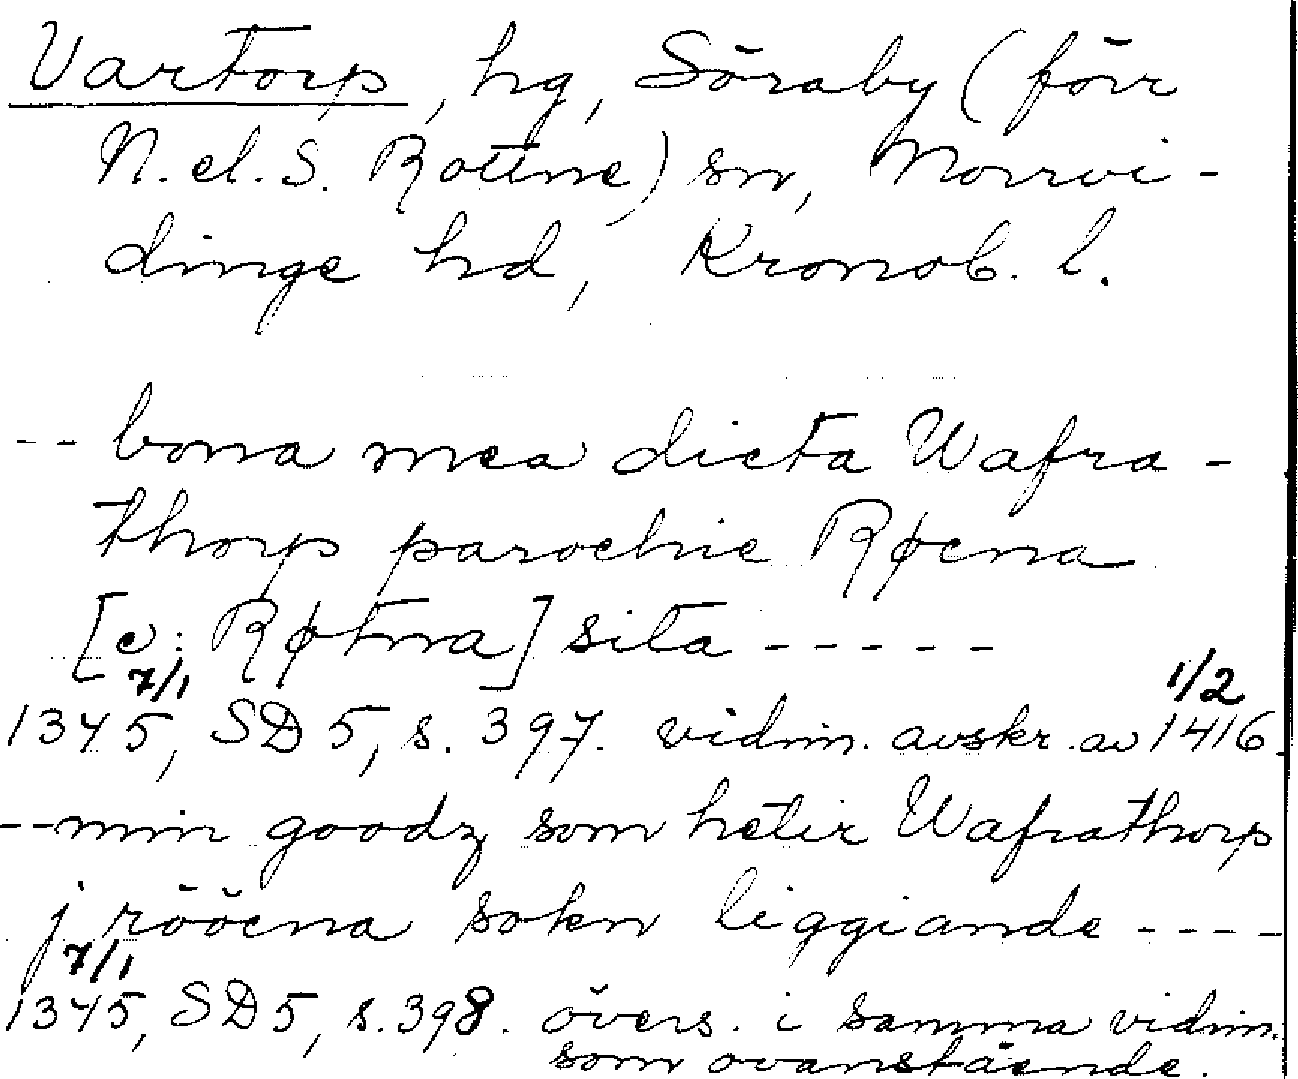 Vartorp, hg, Söraby (förr
N. el. S. Rottne) sn, Norrvi-
dinge hd, Kronob. l.
-- bona mea dicta Wafra-
thorp parochie Røcna
[ɔ: Røtna] sita -----
7/1 1/2
1345, SD 5, s. 397. vidim. avskr. av 1416.
-- min goodz som hetir Wafrathorp
j rööcna sokn liggiande ----
7/1
1345, SD 5, s. 398. övers. i samma vidim.
som ovanstående.